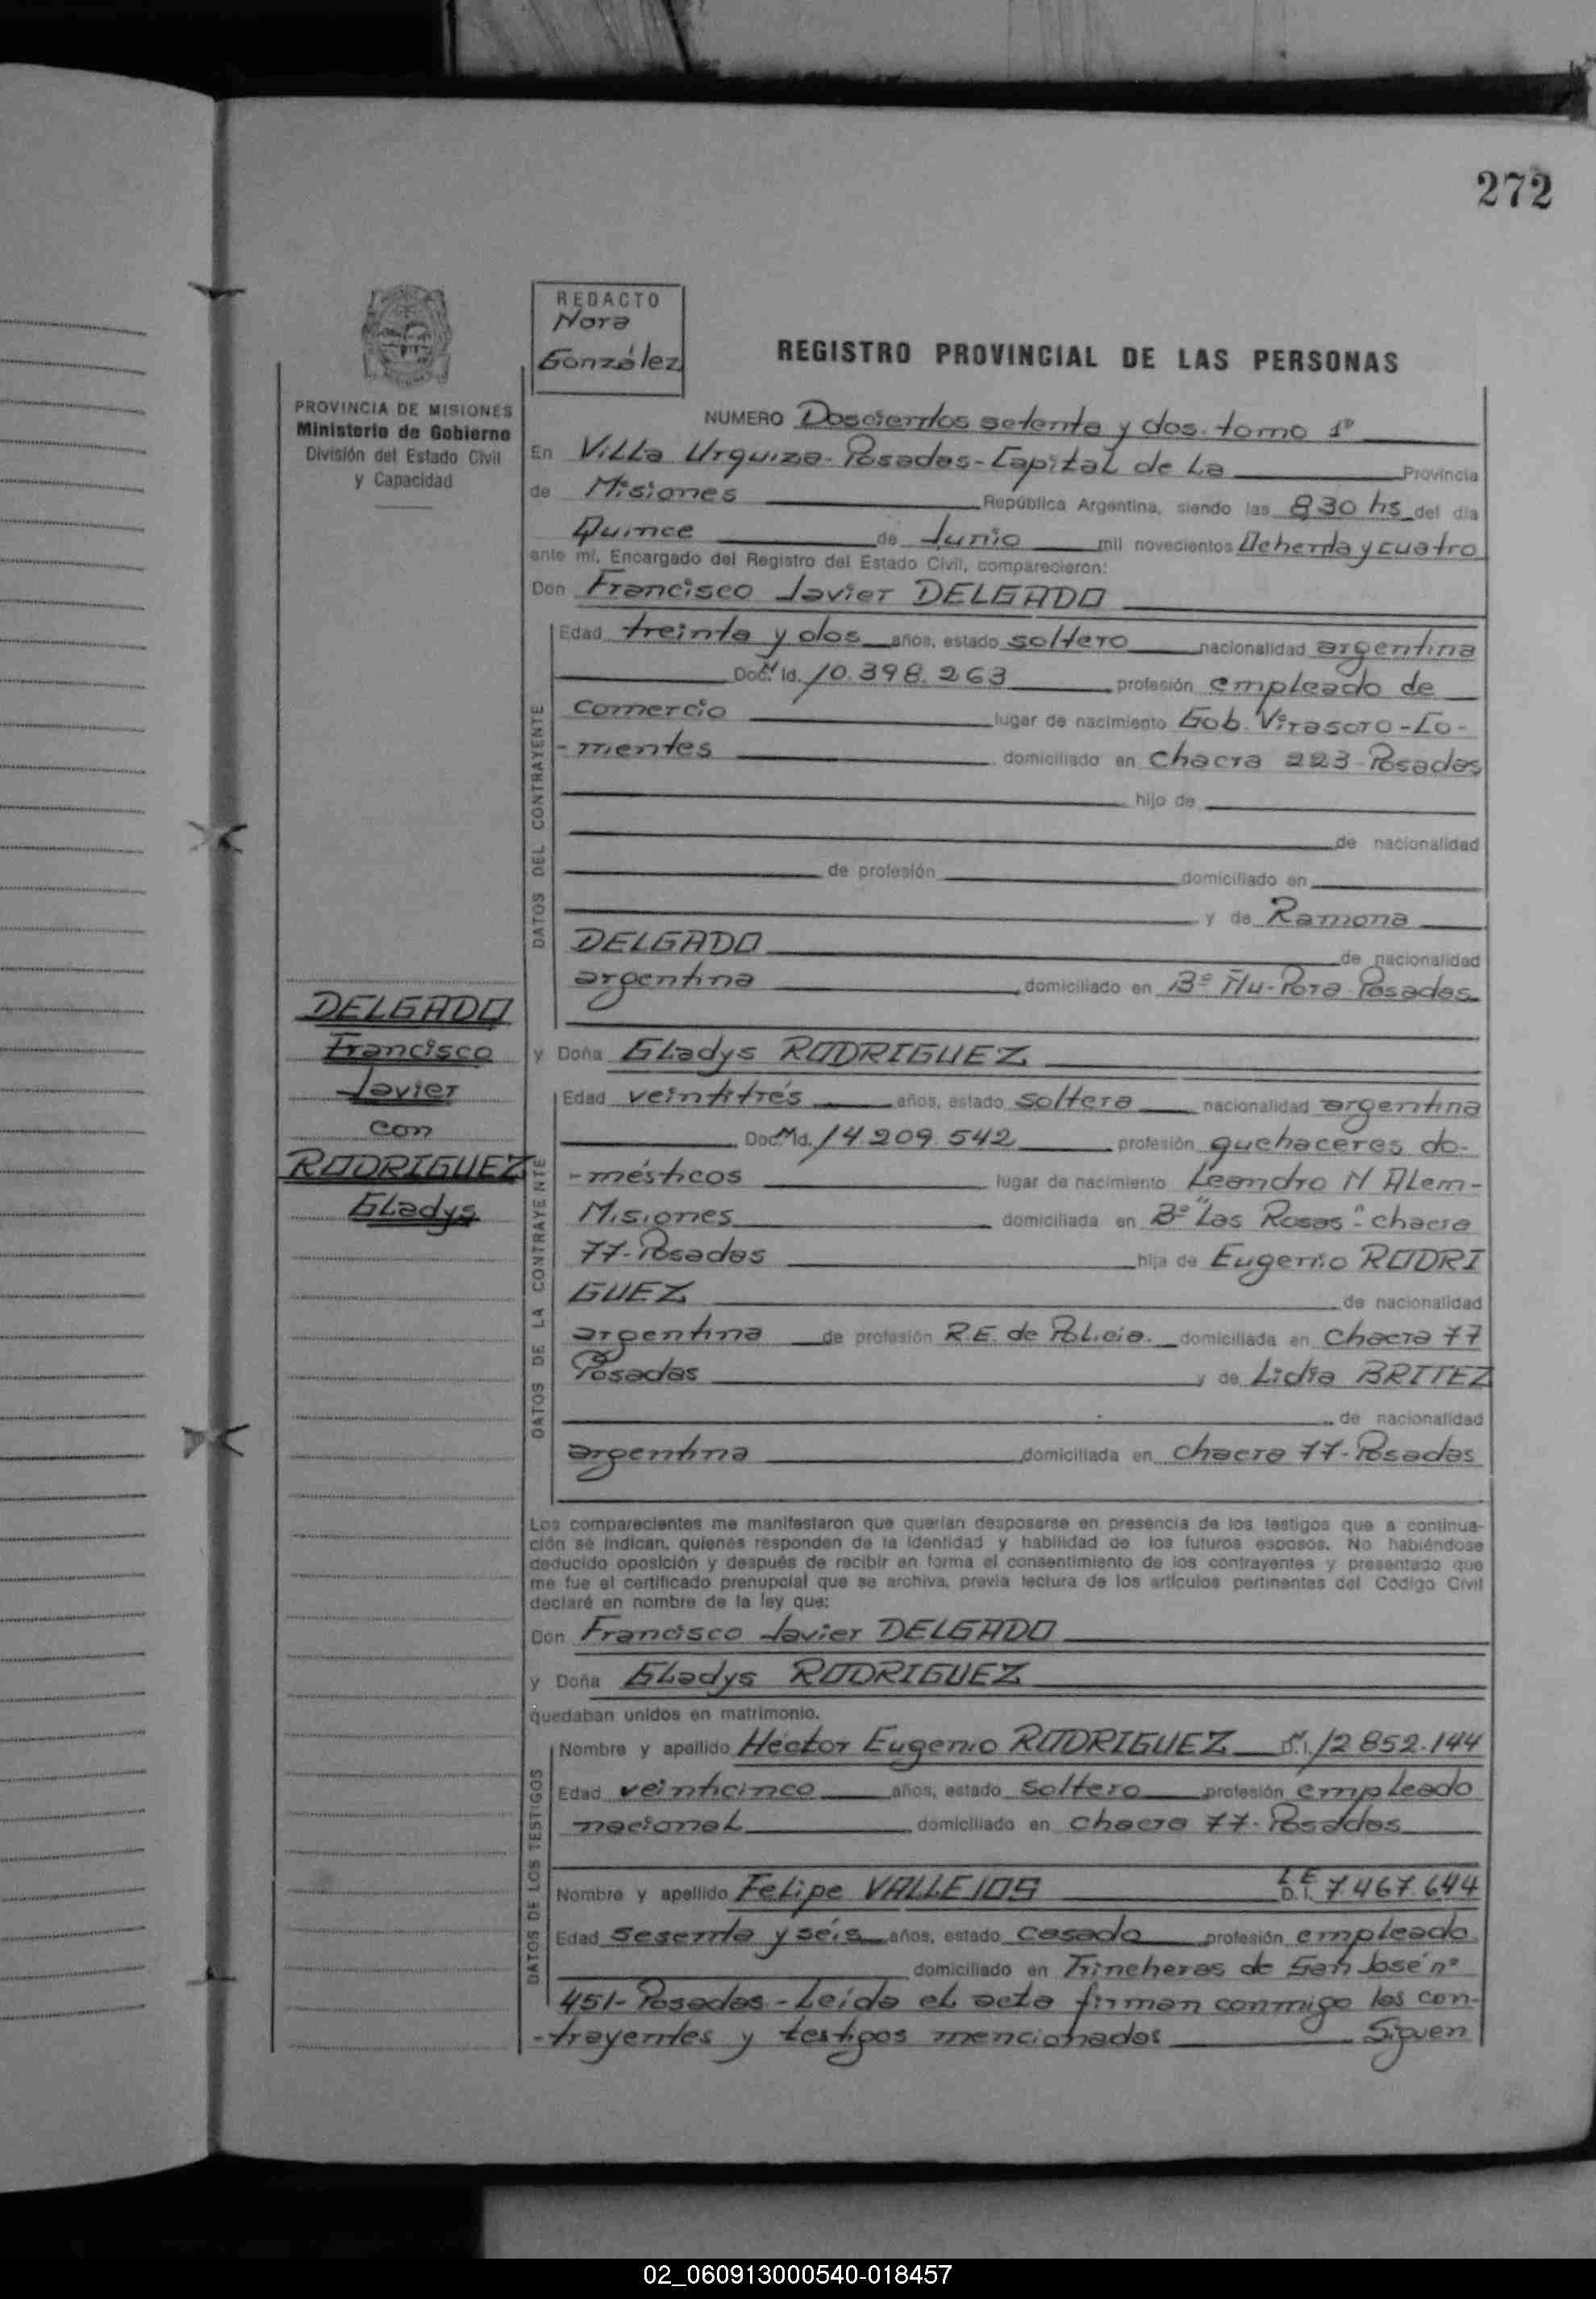 272
REDACTO
Nora
González
REGISTRO PROVINCIAL DE LAS PERSONAS
PROVINCIA DE MISIONES
Ministerio de Gobierno
División del Estado Civil
y Capacidad
NUMERO Doscientos setenta y dos. tomo 1º
En Villa Urquiza-Posadas-Capital de La Provincia
de Misiones República Argentina, siendo las 8.30 hs del día
Quince de Junio mil novecientos Ochenta y cuatro
ante mí, Encargado del Registro del Estado Civil, comparecieron:
Don Francisco Javier DELGADO
DATOS DEL CONTRAYENTE
Edad treinta y dos años, estado soltero nacionalidad argentina
Doc. Id. M 10.398.263 profesión empleado de
comercio lugar de nacimiento Gob. Virasoro-Co-
-rrientes domiciliado en Chacra 223-Posadas
hijo de
de nacionalidad
de profesión domiciliado en
y de Ramona
DELGADO de nacionalidad
argentina domiciliado en Bº Ñu-Pora-Posadas
DELGADO
Francisco
Javier
con
RODRIGUEZ
Gladys
y Doña Gladys RODRIGUEZ
DATOS DE LA CONTRAYENTE
Edad veintitrés años, estado soltera nacionalidad argentina
Doc. Id. 14.209.542 profesión quehaceres do-
-mésticos lugar de nacimiento Leandro N Alem-
Misiones domiciliada en Bº "Las Rosas"-chacra
77-Posadas hija de Eugenio RODRI
GUEZ de nacionalidad
argentina de profesión R.E. de Policia. domiciliada en Chacra 77
Posadas y de Lidia BRITEZ
de nacionalidad
argentina domiciliada en chacra 77-Posadas
Los comparecientes me manifestaron que querían desposarse en presencia de los testigos que a continua-
ción se indican, quienes responden de la identidad y habilidad de los futuros esposos. No habiéndose
deducido oposición y después de recibir en forma el consentimiento de los contrayentes y presentado que
me fue el certificado prenupcial que se archiva, previa lectura de los artículos pertinentes del Código Civil
declaré en nombre de la ley que:
Don Francisco Javier DELGADO
y Doña Gladys RODRIGUEZ
quedaban unidos en matrimonio.
DATOS DE LOS TESTIGOS
Nombre y apellido Héctor Eugenio RODRIGUEZ D.I. 12.852.144
Edad veinticinco años, estado soltero profesión empleado
nacional domiciliado en chacra 77-Posadas
Nombre y apellido Felipe VALLEJOS L.E. D.I. 7.467.644
Edad sesenta y séis años, estado casado profesión empleado
domiciliado en Trincheras de San José nº
451-Posadas-Leída el acta firman conmigo los con-
-trayentes y testigos mencionados Siguen
02_060913000540-018457